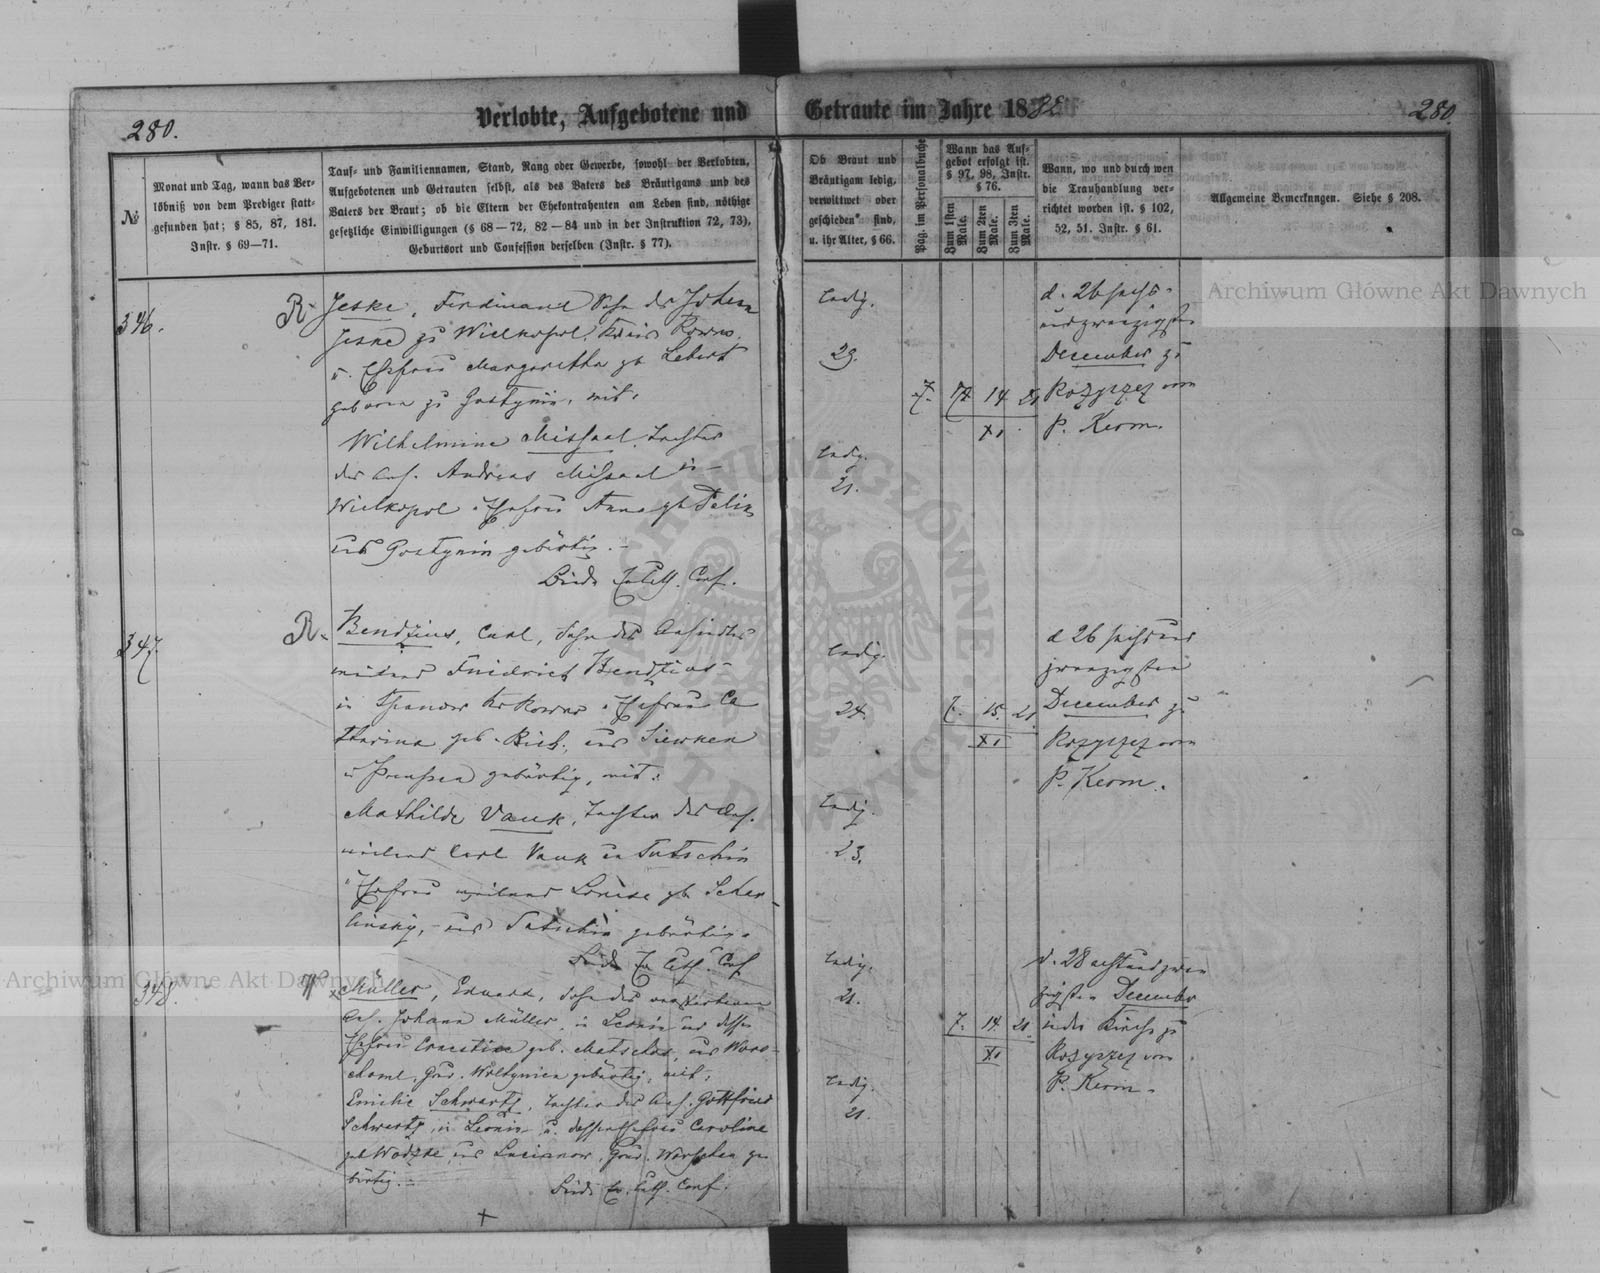 280.
Verlobte, Aufgebotene und
Getraute im Jahre 1882.
280.
№
Monat und Tag, wann das Ver-
löbniß von dem Prediger statt-
gefunden hat; § 85, 87, 181.
Instr. § 69—71.
Tauf- und Familiennamen, Stand, Rang oder Gewerbe, sowohl der Verlobten,
Aufgebotenen und Getrauten selbst, als des Vaters des Bräutigams und des
Vaters der Braut; ob die Eltern der Ehekontrahenten am Leben sind, nöthige
gesetzliche Einwilligungen (§ 68—72, 82—84 und in der Instruktion 72, 73),
Geburtsort und Confession derselben (Instr. § 77).
Ob Braut und
Bräutigam ledig,
verwittwet oder
geschieden sind,
u. ihr Alter, § 66.
Pag. im Personalbuche
Wann das Auf-
gebot erfolgt ist.
§ 97, 98, Instr.
§ 76.
Zum 1sten Male.
Zum 2ten Male.
Zum 3ten Male.
Wann, wo und durch wen
die Trauhandlung ver-
richtet worden ist. § 102,
52, 51. Instr. § 61.
Allgemeine Bemerkungen. Siehe § 208.
346.
R.
Jeske, Ferdinand Sohn des Johann
Jeske zu Wielkopol, Kreis Rowno,
u. Ehefrau Margaretha gb Lebert
geboren zu Gostynin, mit:
Wilhelmine Missaal, Tochter
des Col. Andreas Missaal in
Wielkopol u Ehefrau Anna gb
aus Gostynin gebürtig.
Beide Ev. luth. Conf.
ledig.
29.
ledig.
21.
7. 14 21
XI
d. 26 sechs-
undzwanzigsten
December zu
Rozyszcz vom
P. Kerm.
347.
R.
Bendzius, Carl, Sohn des
weiland Friedrich Bendzius
in Kr Rowno u Ehefrau Ca
tharina geb. aus
in Preußen gebürtig, mit:
Mathilde Vauk, Tochter des Col.
weiland Carl Vauk in Tutschin
u Ehefrau weiland Louise gb Scher-
linsky, aus Tutschin gebürtig.
Beide Ev. luth. Conf
ledig.
24.
ledig.
23.
7. 15. 21.
XI
d 26 sechsund
zwanzigsten
December zu
Rozyszcz vom
P. Kerm.
348.
Müller, Eduard, Sohn des verstorbenen
Col. Johann Müller, in Leonin und dessen
Ehefrau Ernestine geb. aus
Gouv. Wolhynien gebürtig, mit:
Emilie Schwartz, Tochter des Col. Gottfried
Schwartz, in Leonin u. dessen Ehefrau Caroline
geb aus Lucianow, Gouv. Warschau ge
bürtig.
Beide Ev. luth. Conf.
ledig.
21.
ledig.
21.
7. 14. 21.
XI
d. 28 achtundzwan
zigsten December
in der Kirche zu
Rozyszcz vom
P. Kerm.
Archiwum Główne Akt Dawnych
Archiwum Główne Akt Dawnych
ARCHIWUM GŁÓWNE AKT DAWNYCH